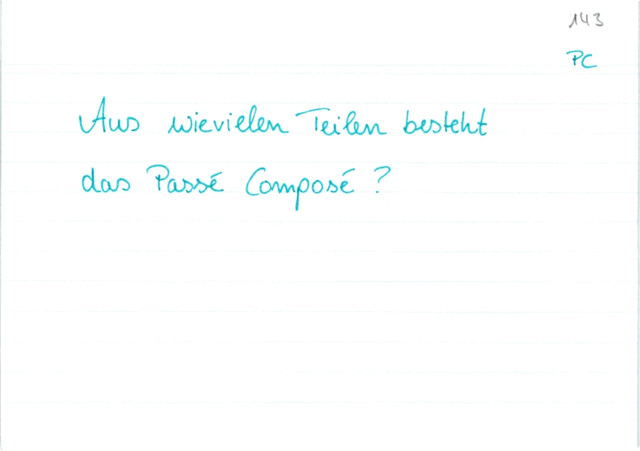 143
PC
Aus wievielen Teilen besteht
das Passé Composé?